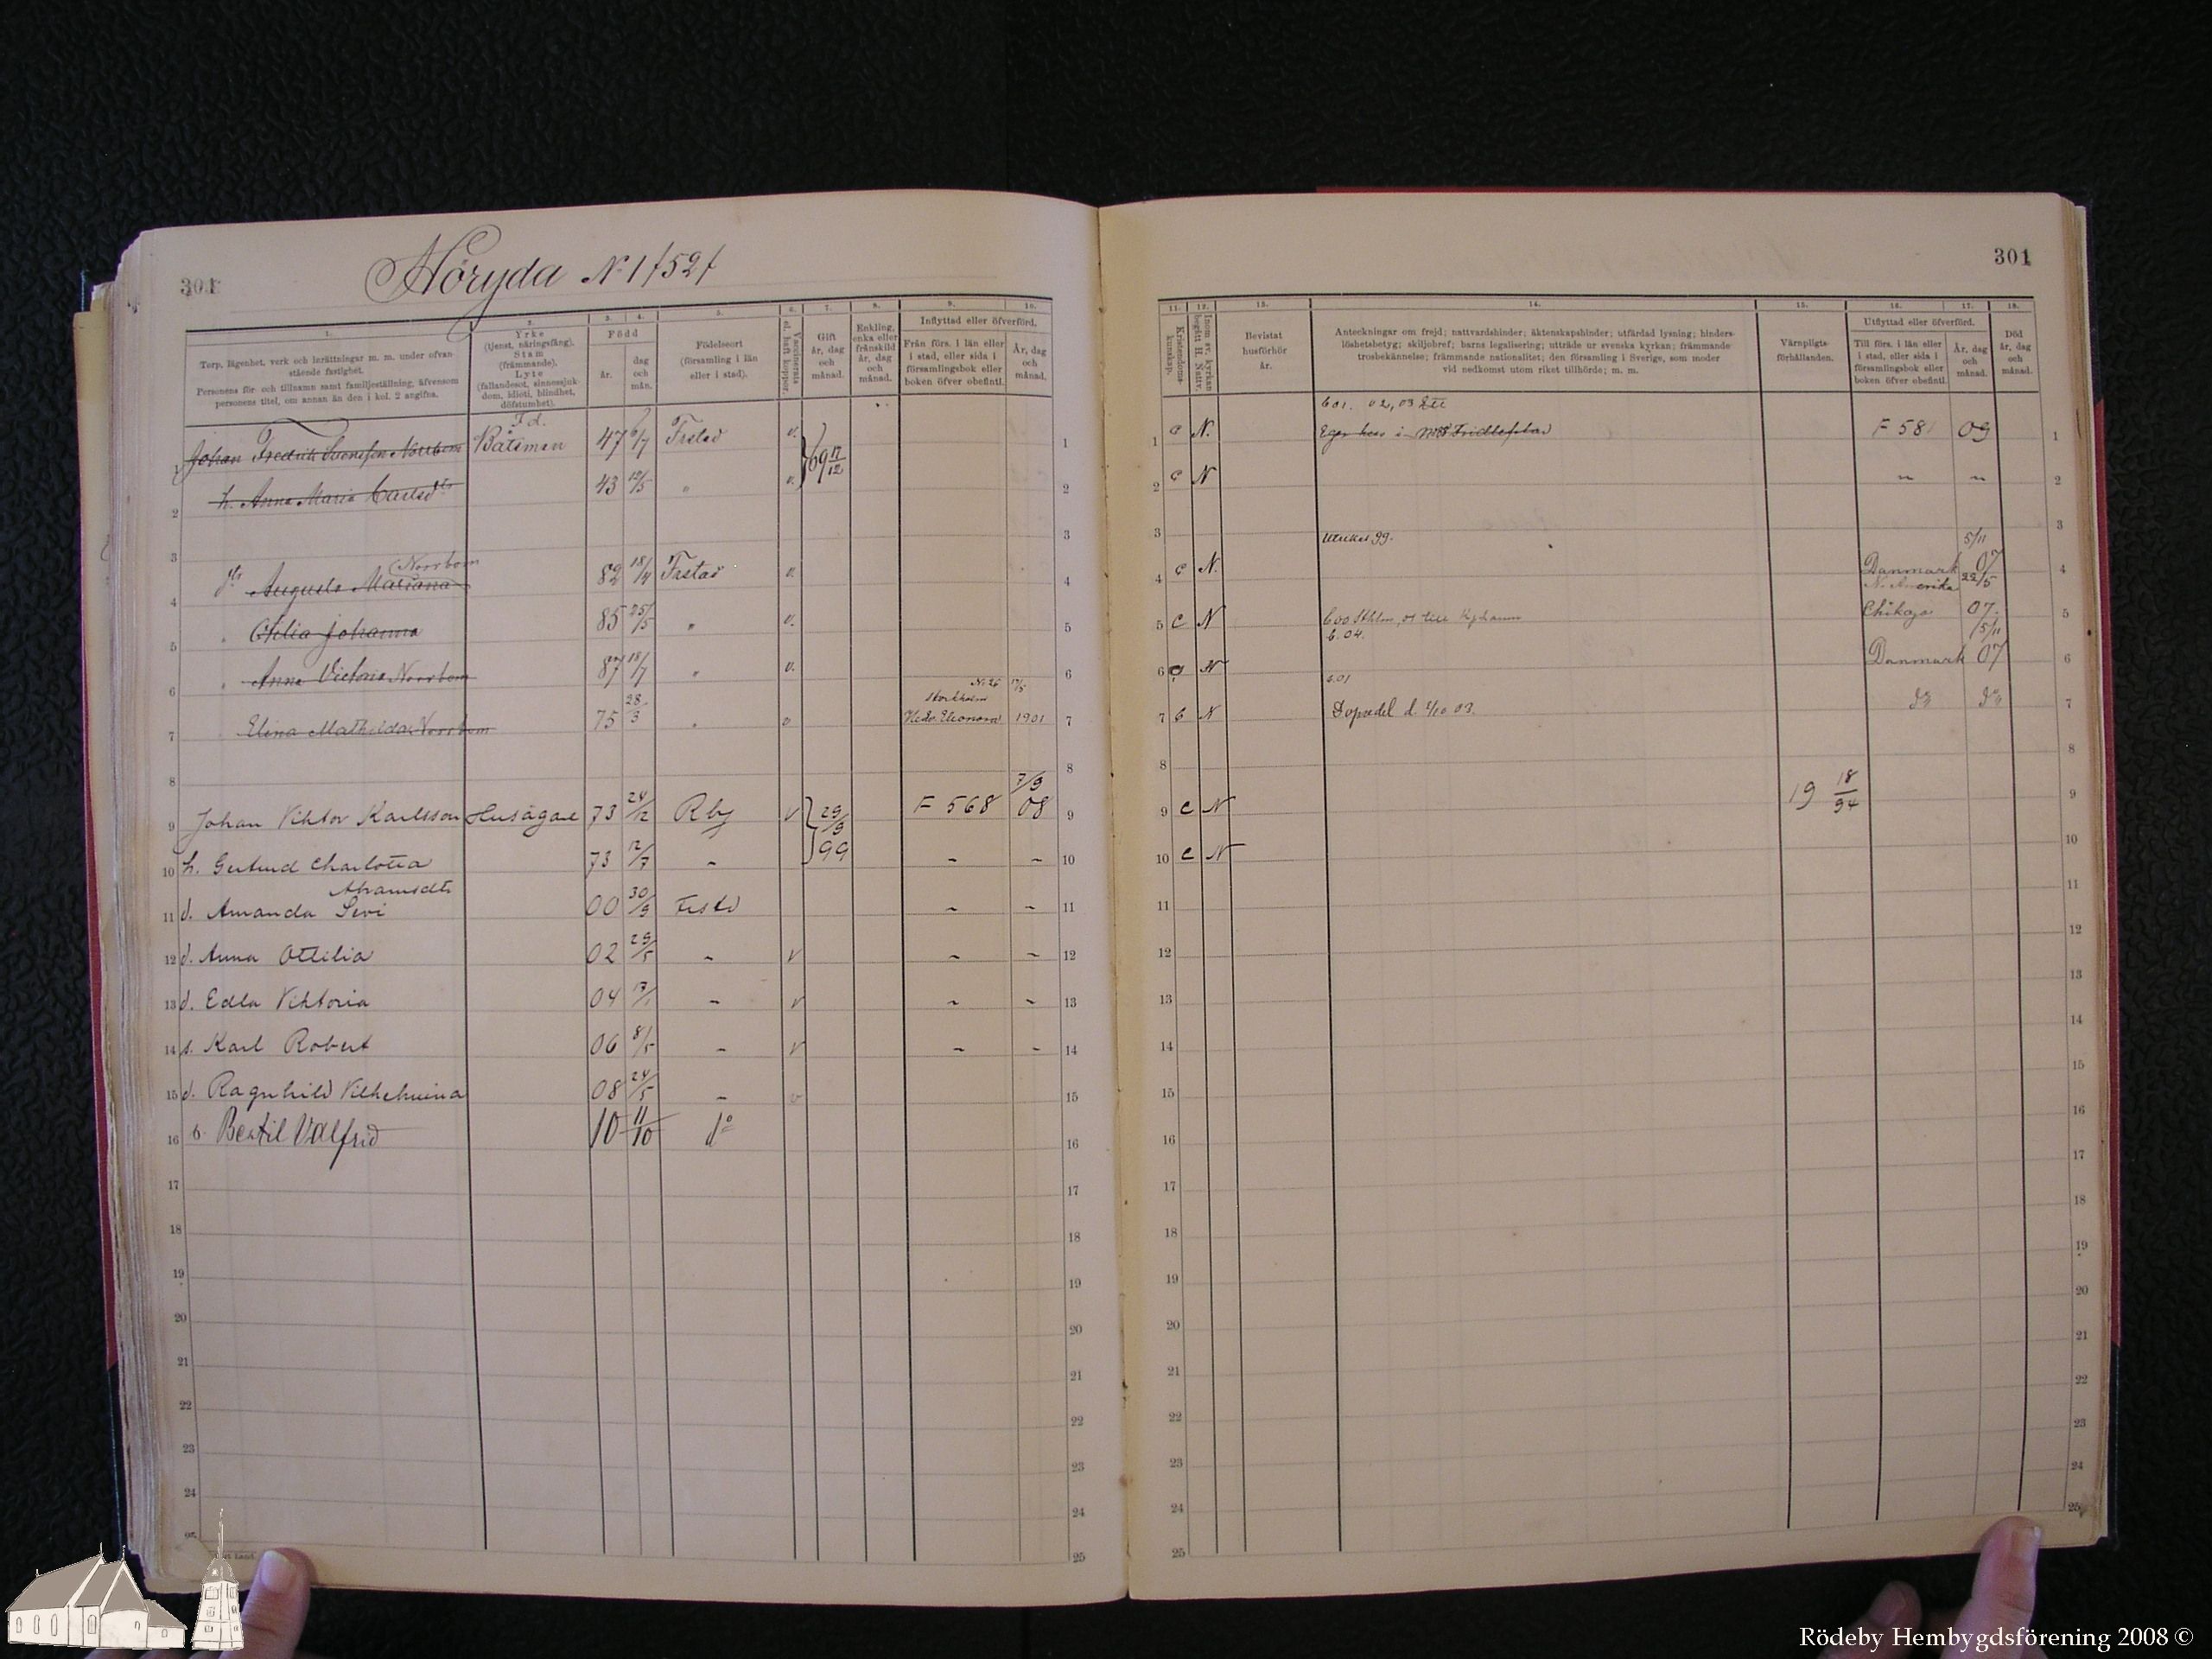 301
Höryda N:1 /52/
1. 2. 3. 4. 5. 6. 7. 8. 9. 10.
Torp, lägenhet, verk och inrättningar m. m. under ofvan-
stående fastighet.
Personens för- och tillnamn samt familjeställning, äfvensom
personens titel, om annan än den i kol. 2 angifna.
Yrke
(tjenst, näringsfång).
Stam
(främmande).
Lyte
(fallandesot, sinnessjuk-
dom, idioti, blindhet,
döfstumhet).
Född
år.
dag
och
mån.
Födelseort
(församling i län
eller i stad).
Vaccinerats
el. haft koppor.
Gift
år, dag
och
månad.
Enkling,
enka eller
frånskild
år, dag
och
månad.
Inflyttad eller öfverförd.
Från förs. i län eller
i stad, eller sida i
församlingsbok eller
boken öfver obefintl.
År, dag
och
månad.
F d.
1 Johan Fredrik Svensson Norrbom Båtsman 47 6/7 Frstad v. 69 17/12 1
2 h. Anna Maria Carlsdtr 43 12/5 " v. 2
3 3
Norrbom
4 dtr Augusta Mariana 82 18/4 Frstad v. 4
5 " Otilia Johanna 85 25/5 " v. 5
6 " Anna Victoria Norrbom 87 18/7 " v. 6
No 26 17/5
Stockholm
7 Elina Mathilda Norrbom 75 28/3 " v Hedv. Eleonora 1901 7
8 8
9 Johan Viktor Karlsson Husägare 73 24/12 Rby v 29/9 99 F 568 7/9 08 9
10 h. Gertrud Charlotta 73 12/7 - - - 10
Abramsdtr
11 d. Amanda Sevi 00 30/9 Frstd - - 11
12 d. Anna Ottilia 02 29/5 - v - - 12
13 d. Edla Viktoria 04 17/1 - v - - 13
14 s. Karl Robert 06 8/5 - v - - 14
15 d. Ragnhild Vilhelmina 08 24/5 - v 15
16 Bertil Valfrid 10 11/10 do 16
17 17
18 18
19 19
20 20
21 21
22 22
23 23
24 24
25 25
301
11. 12. 13. 14. 15. 16. 17. 18.
Kristendoms-
kunskap.
Inom sv. kyrkan
begått H. Nattv.
Bevistat
husförhör
år.
Anteckningar om frejd; nattvardshinder; äktenskapshinder; utfärdad lysning; hinders-
löshetsbetyg; skiljobref; barns legalisering; utträde ur svenska kyrkan; främmande
trosbekännelse; främmande nationalitet; den församling i Sverige, som moder
vid nedkomst utom riket tillhörde; m. m.
Värnpligts-
förhållanden.
Utflyttad eller öfverförd.
Till förs. i län eller
i stad, eller sida i
församlingsbok eller
boken öfver obefintl.
År, dag
och
månad.
Död
år, dag
och
månad.
b 01. 02, 03
1 C N. Eger hus i Fridlefstad F 58 09 1
2 C N - - 2
3 99. 5/11 3
4 C N. Danmark 07 4
N. Amerika 22/5
5 C N b 00 Sthlm, 01 Chikago 07. 5
b. 04. 5/11
6 C N Danmark 07 6
b. 01
7 C N N do do 7
8 8
9 C N 19 18/94 9
10 C N 10
11 11
12 12
13 13
14 14
15 15
16 16
17 17
18 18
19 19
20 20
21 21
22 22
23 23
24 24
25 25
Rödeby Hembygdsförening 2008 ©